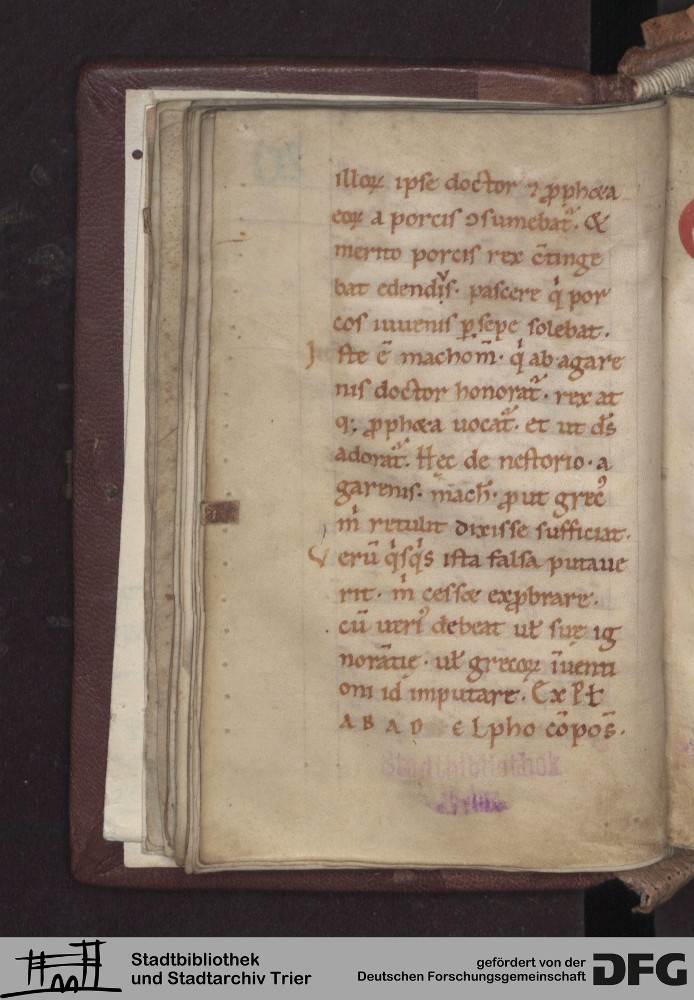 illoꝝ ipse doctor ⁊ ꝓpheta
eoꝝ a porcis ↄsumebat᷑. &
merito porcis rex c̄tinge
bat edendus. pascere q̇ por
cos iuuenis p̱sepe solebat.
Iste ē machom̄. q̇ ab agare
nis doctor honorat᷑. rex at
q;. ꝓpheta uocat᷑. et ut d̄s
adorat᷑. Hęc de nestorio. a
garenis. mach̄. ꝓut grec᷒
m̍ retulit dixisse sufficiat.
Verū q̍sq̍s ista falsa putaue
rit. m̍ cesset exꝓbrare.
cū ueri᷒ debeat uł suę ig
norātię. uł grecoꝝ īuenti
oni id imputare. Explt
ABAD ELpho cōpos̄.
Stadtbibliothek
Stadtbibliothek
und Stadtarchiv Trier
gefördert von der
Deutschen Forschungsgemeinschaft
DFG